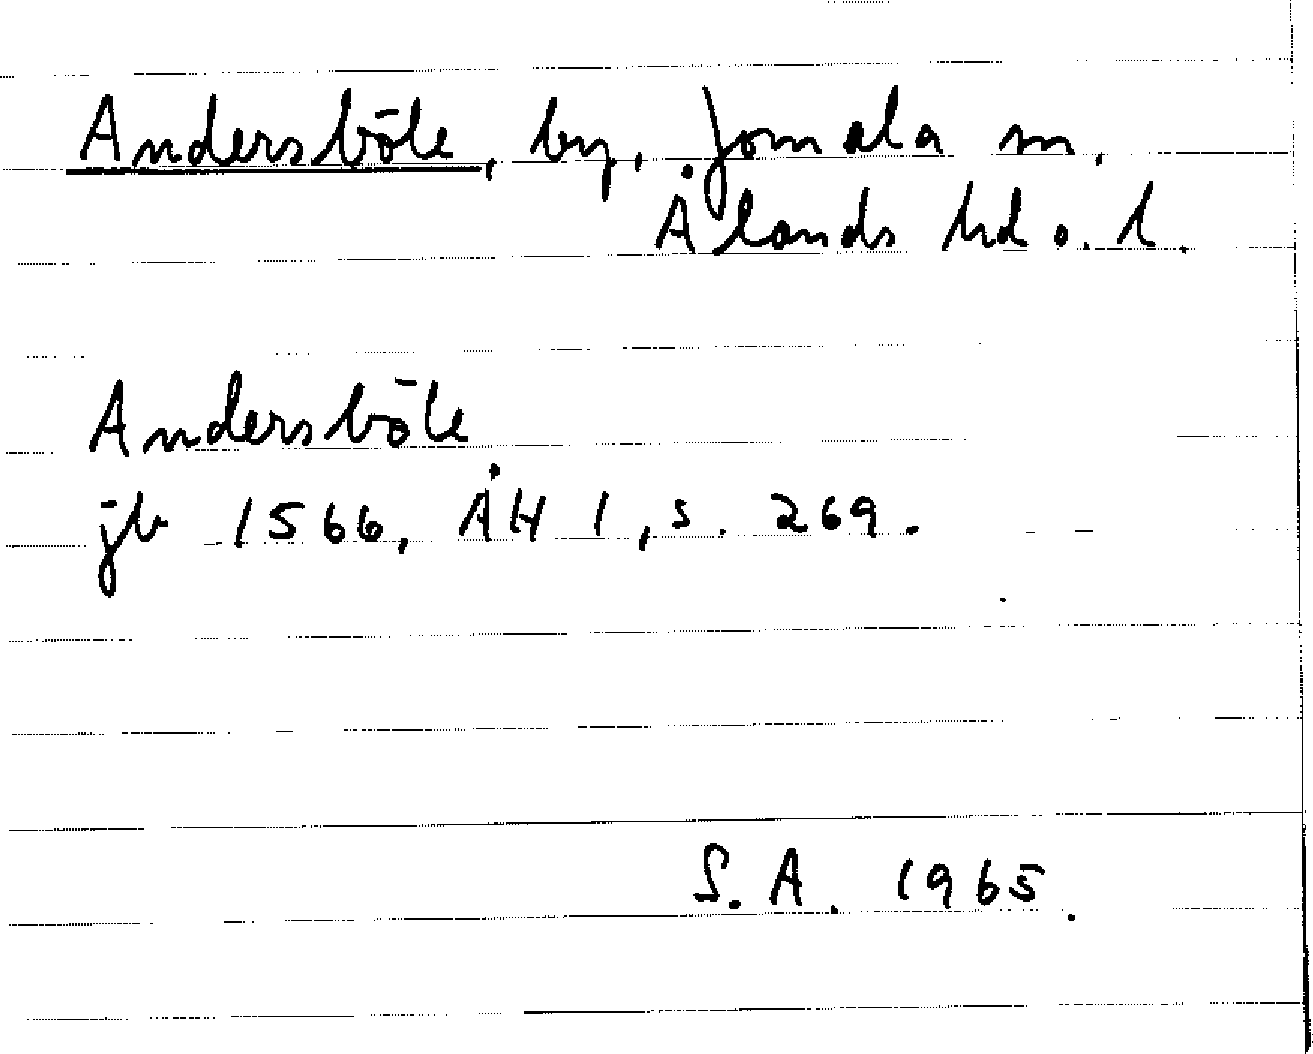 Andersböle, by, Jomala sn.
Ålands hd o. l.
Andersböle
jb 1566, ÅH 1, s. 269.
S.A. 1965.